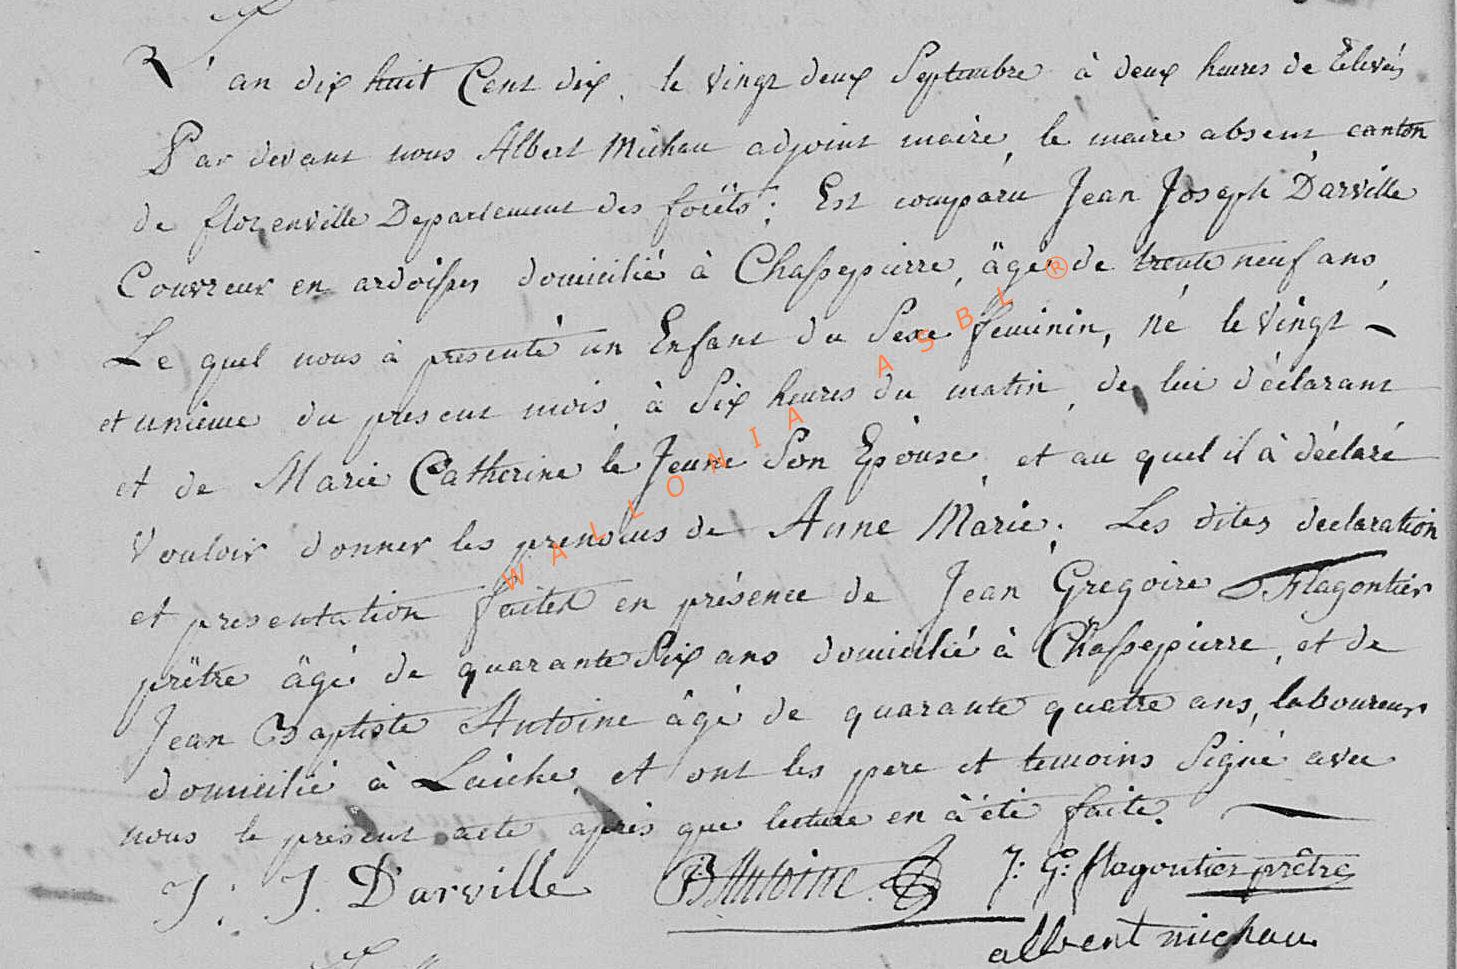 L'an dix huit Cent dix, le vingt deux Septembre à deux heures de relevés
Par devant nous Albert Michau adjoint maire, le maire absent, canton
de florenville Departement des forêts; Est comparu Jean Joseph Darville
Couvreur en ardoisses domicilié à Chassepierre, âgé de trente neuf ans,
Le quel nous à présenté un Enfant du Sexe feminin, né le vingt
et unieme du present mois, à Six heures du matin, de lui déclarant
et de Marie Catherine le Jeune Son Epouse, et au quel il à déclaré
Vouloir donner les prenoms de Anne Marie; Les dites declaration
et presentation faites en présence de Jean Gregoire Flagontier
prêtre âgé de quarante Six ans domicilié à Chassepierre, et de
Jean Baptiste Antoine âgé de quarante quatre ans, laboureur
domicilié à Laiche, et ont les pere et temoins Signé avec
nous le présent acte après que lecture en à été faite.
J: J. Darville B Antoine J: G: flagontier prêtre
albert michau
WALLONIA ASBL ®